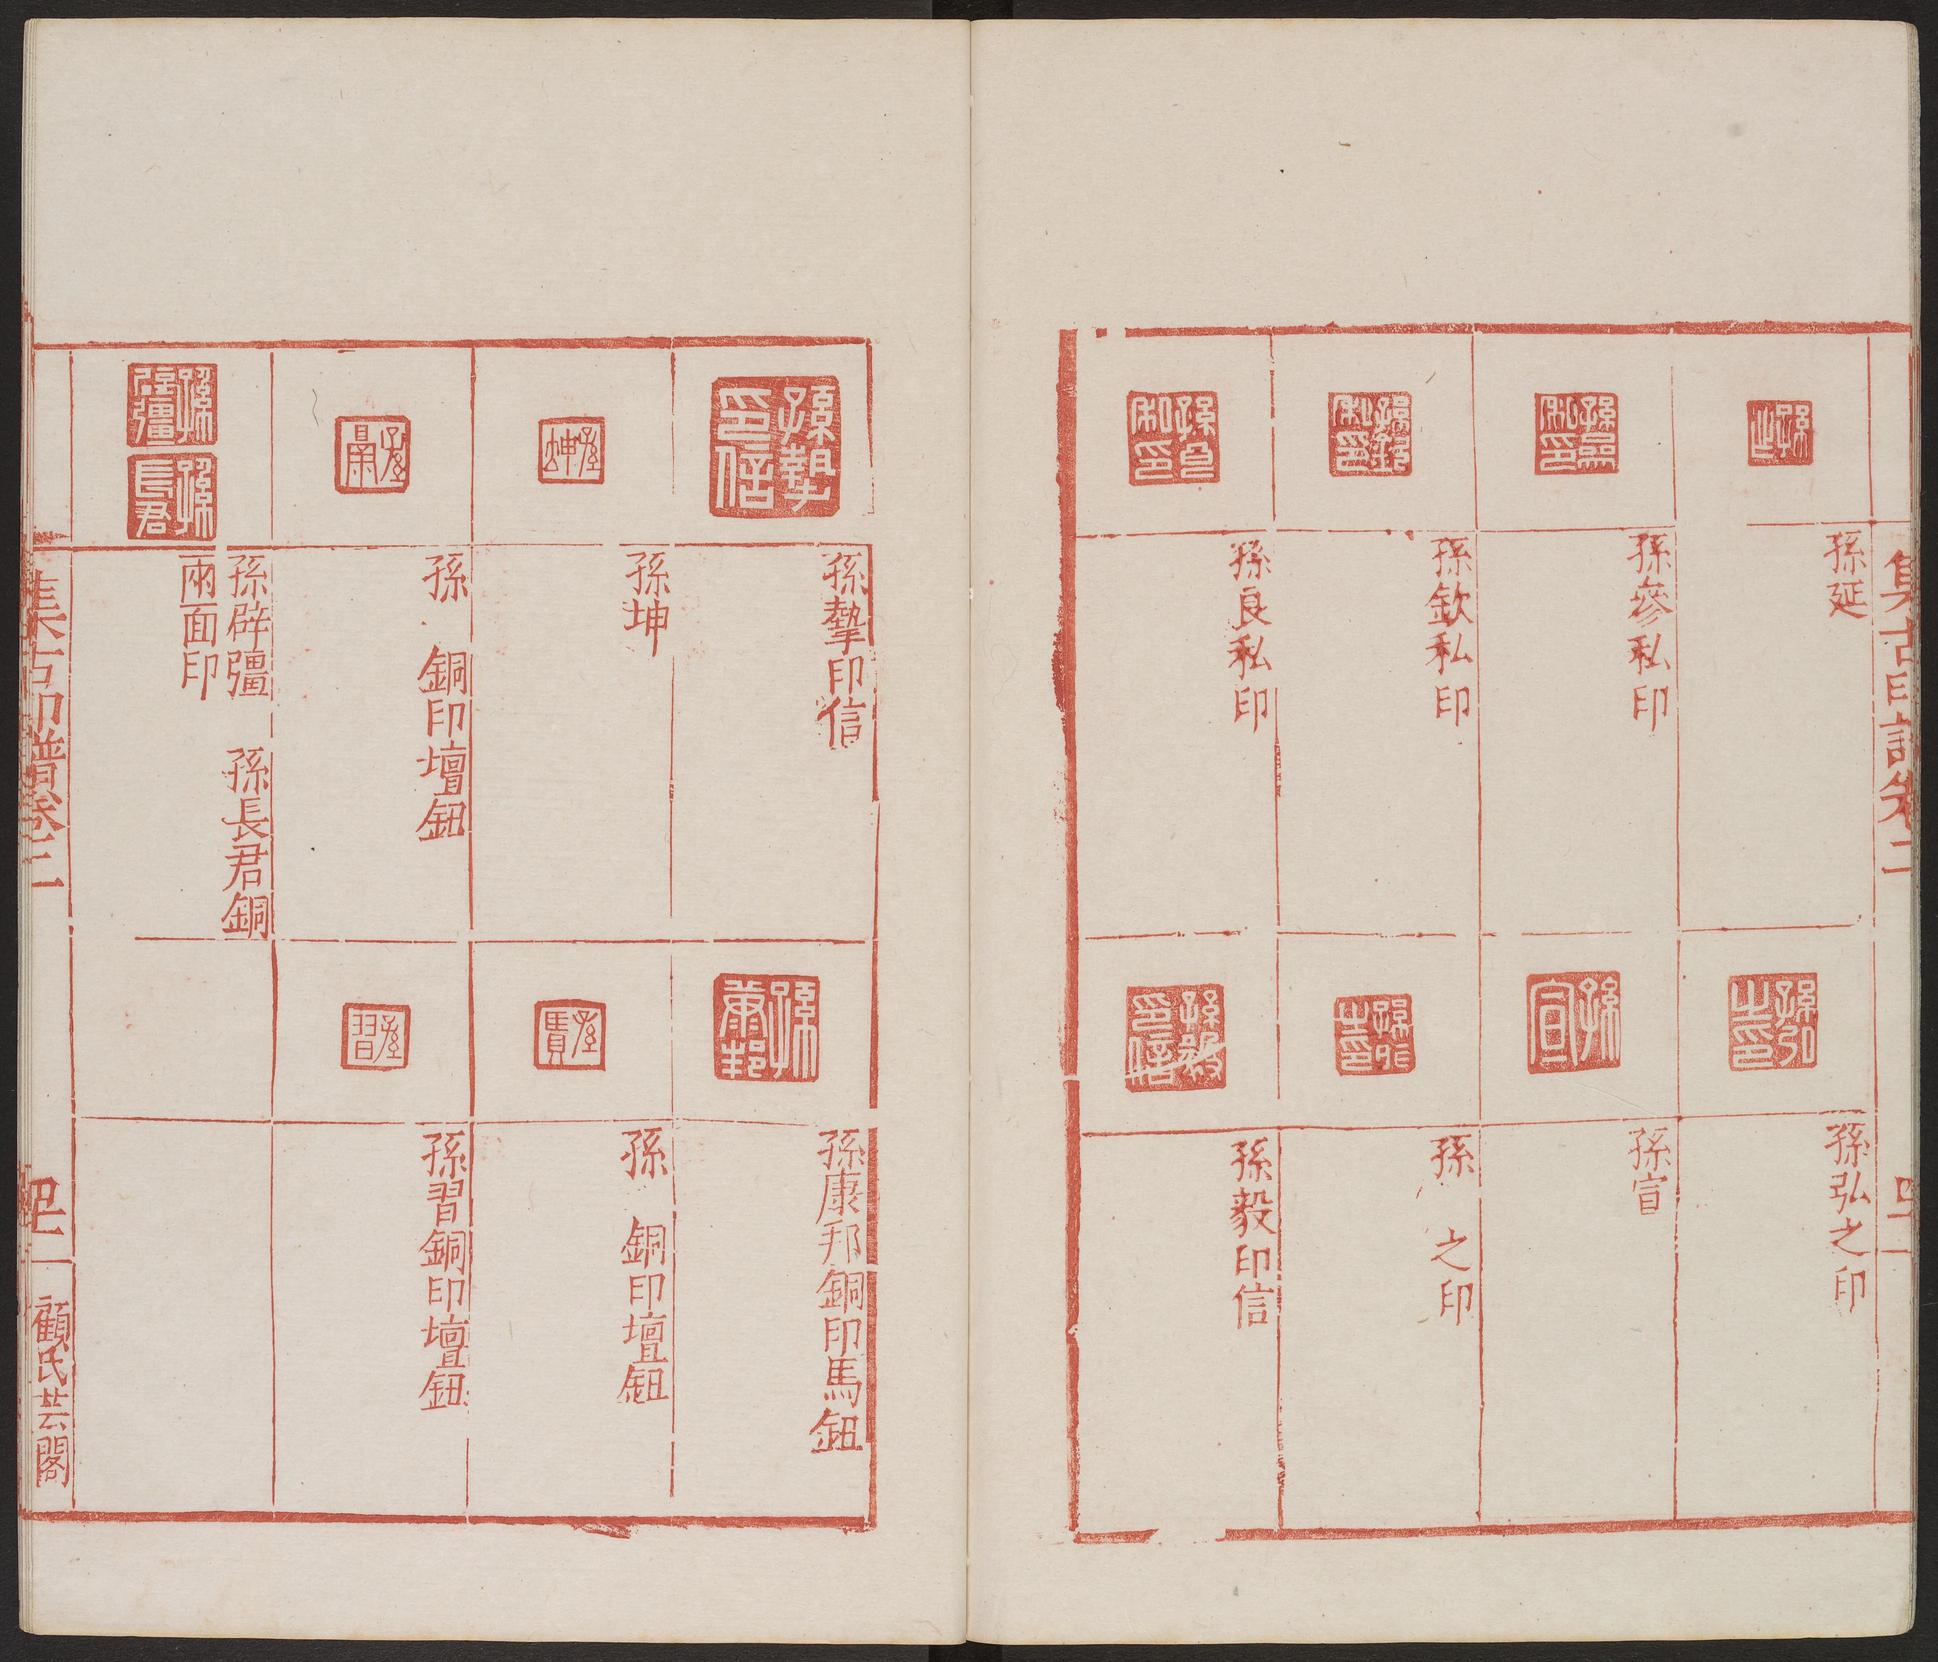 集古印譜卷二
孫延
孫參私印
孫欽私印
孫良私印
孫弘之印
孫宣
孫 之印
孫毅印信
孫摯印信
孫坤
孫 銅印壇鈕
孫辟彊 孫長君銅
兩面印
孫康邦銅印馬鈕
孫 銅印壇鈕
孫習銅印壇鈕
集古印譜卷二
顧氏芸閣